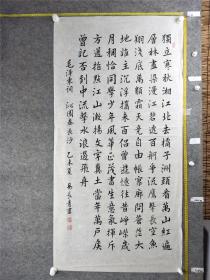 獨立寒秋湘江北去橘子洲頭看萬山紅遍
層林盡染漫江碧透百舸爭流鷹擊長空魚
翔淺底萬類霜天競自由悵寥廓問蒼茫大
地誰主沉浮攜來百侶曾遊憶往昔崢嶸歲
月稠恰同學少年風華正茂書生意氣揮斥
方遒指點江山激揚文字糞土當年萬戶侯
曾記否到中流擊水浪遏飛舟
毛澤東詞 沁園春長沙 乙未夏